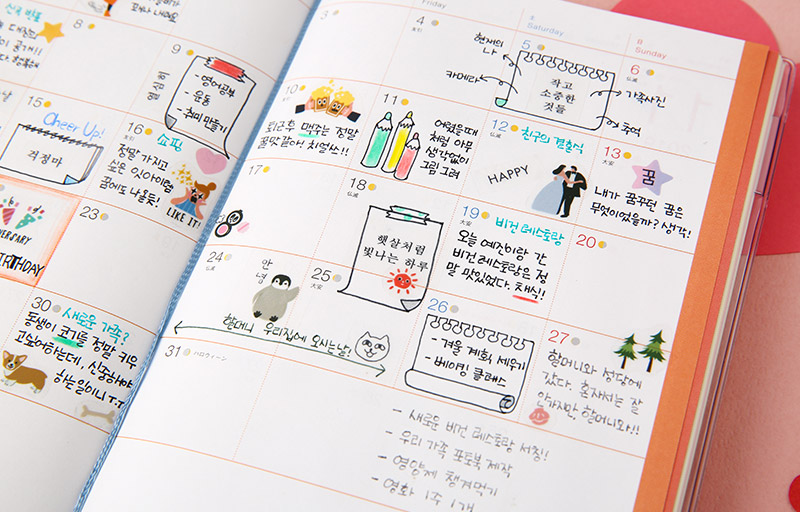 8
9
열심히
- 영어공부
- 운동
- 취미 만들기
15
Cheer Up!
걱정마
16
쇼핑
정말 가지고
싶은 잇아이템
LIKE IT!
23
30
새로운 가족?
동생이 코기를 정말 키우
고싶어하는데, 신중해야
하는일이니 T.T
Friday
Saturday
Sunday
3
4
5
현재의
나
카메라
작고
소중한
것들
6
가족사진
추억
10
퇴근후 맥주는 정말
꿀맛 같아! 치얼쓰!!
11
어렸을때
처럼 아무
생각없이
그림 그려
12
친구의 결혼식
HAPPY
13
꿈
내가 꿈꾸던 꿈은
무엇이었을까? 생각!
17
18
햇살처럼
빛나는 하루
19
비건 레스토랑
오늘 예진이랑 간
비건 레스토랑은 정
말 맛있었다. 채식!!
20
24
안녕
25
할머니 우리집에 오시는날!
26
- 겨울 계획 세우기
- 베이킹 클래스
27
할머니와 성당에
갔다. 혼자서는 잘
안가지만, 할머니와!!
31
ハロウィーン
- 새로운 비건 레스토랑 서칭!
- 우리 가족 포토북 제작
- 영양제 챙겨먹기
- 영화 1주 1개